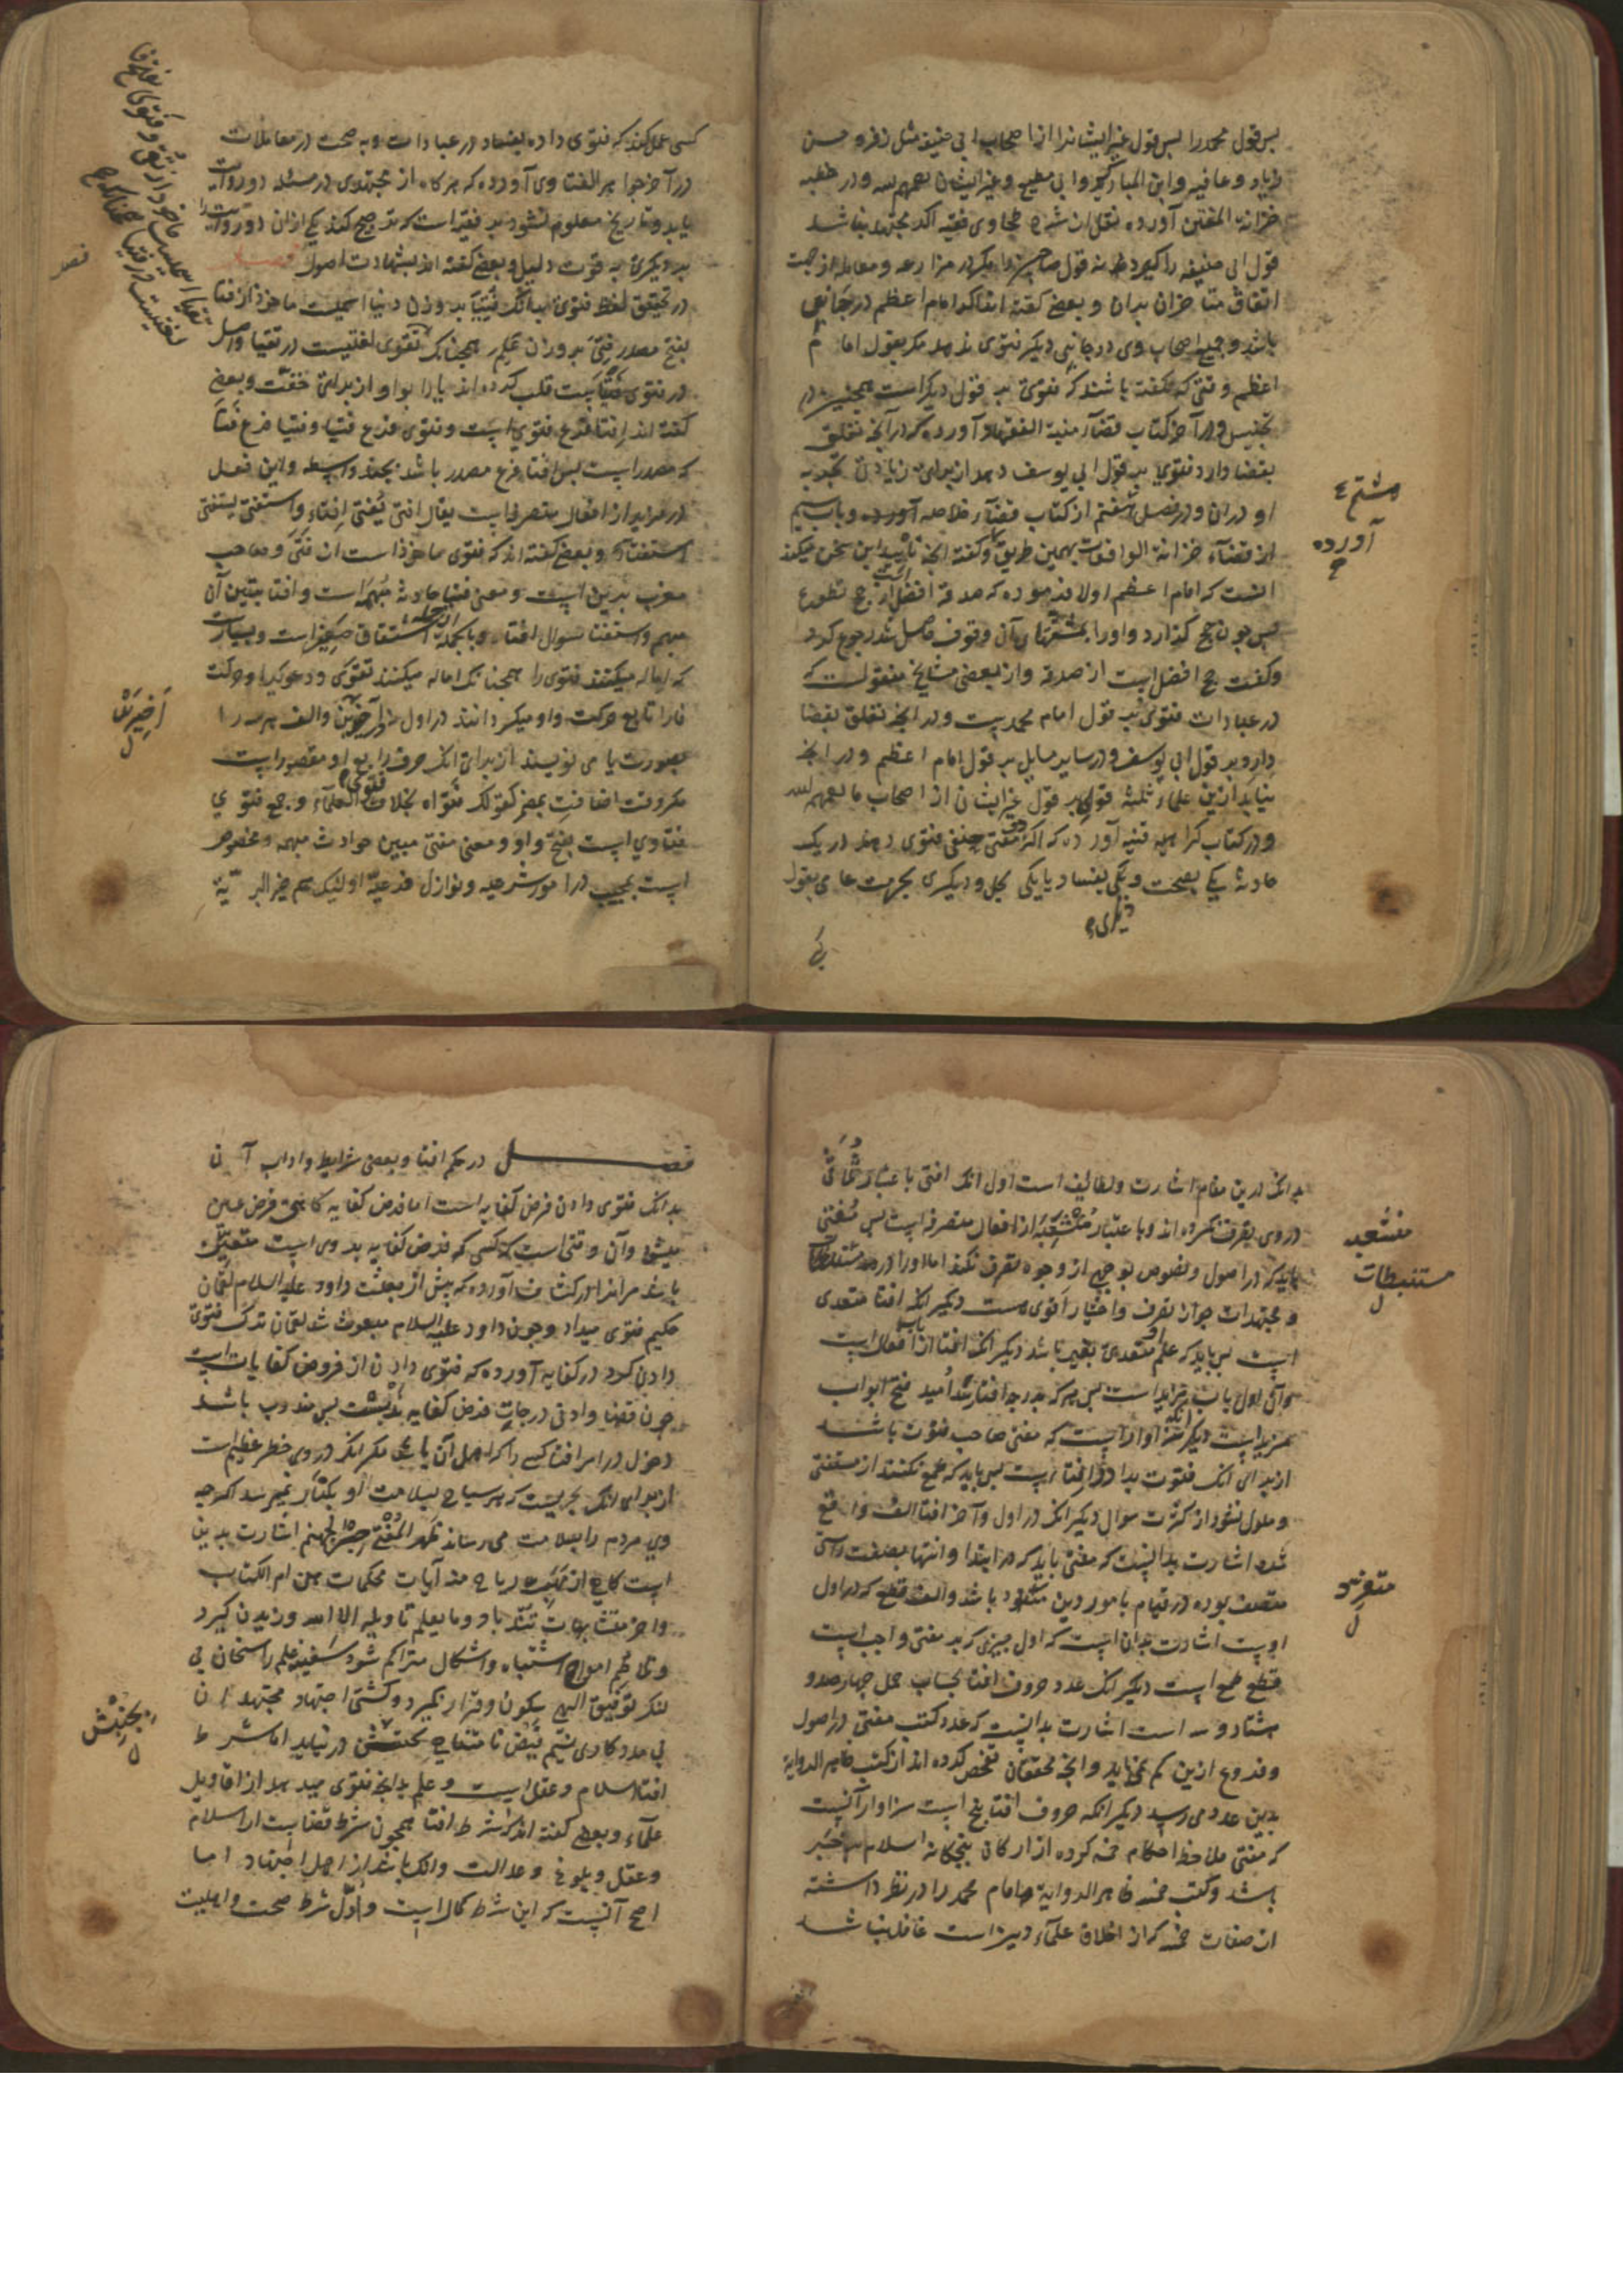 بس قول محمد را بس قول غیر ایشانرا از اصحاب ابی حنیفه مثل زفر و حسن
زیاد و عافیه و ابن المبارک و ابی مطیع و غیر ایشان رحمهم الله و در خطبه
خزانة المفتین آورده نقل از شرح طحاوی فقیه اکر مجتهد نباشد
قول ابی حنیفه را کیرد نه قول صاحبین را مکر در مزارعه و معامله از جهت
اتفاق متاخران بدان و بعضی کفته اند اکر امام اعظم در جانبی
باشد و جمیع اصحاب وی در جانبی دیکر فتوی ندهد مکر بقول امام
اعظم وقتی که نکفته باشند که فتوی بر قول دیکر است همچنین در
تجنیس و در آخر کتاب قضاء منیة الفقهاء آورده که در آنجه تعلق
بقضا دارد فتوی بر قول ابی یوسف دهد از برای زیادت تجربه
او در ان و در فصل هشتم از کتاب قضاء خلاصه آورده و باب سیم
هشتم
آورده
از قضاء خزانة الواقعات بهمین طریق و کفته آنجه تایید این سخن میکند
انست که امام اعظم اولا فرموده که صدقه افضل است از حج تطوع
بس جون حج کذارد و اورا بمشقتهای آن وقوف حاصل شد رجوع کرد
و کفت حج افضل است از صدقه و از بعضی مشایخ منقولست که
در عبادات فتوی بر قول امام محمد است و در آنجه تعلق بقضا
دارد بر قول ابی یوسف و در سایر مسایل بر قول امام اعظم و در آنجه
نیابد ازین علماء ثلثه قولی بر قول غیر ایشان از اصحاب ما رحمهم الله
و در کتاب کراهیه قنیه آورده که اکر دو مفتی حنفی فتوی دهند در یک
حادثه یکی بصحت و یکی بفساد یا یکی بحل و دیکری بحرمت عامی بقول
کسی عمل کند که فتوی داده بفساد در عبادات و به صحت در معاملات
در آخر جواهر الفتاوی آورده که هرکاه از مجتهدی در مسئله دو روایت
یابد و تاریخ معلوم نشود بر فقیه است که ترجیح کند یکی از ان دو روایت را
بر دیکری به قوت دلیل و بعضی کفته اند بشهادت اصول فصل
در تحقیق لفظ فتوی بدانک فتیا بر وزن دنیا اسمیست ماخوذ از فتا
بفتح مصدر فتی بر وزن علم همجنانک تقوی لغتیست در تقیا و اصل
در فتوی فتیا است قلب کرده اند یا را بواو از برای خفت و بعضی
کفته اند افتا فرع فتوی است و فتوی فرع فتیا و فتیا فرع فتا
که مصدر است بس افتا فرع مصدر باشد بجند واسطه و این فعل
در مزید از افعال متصرفه است یقال افتی یفتی افتاء و استفتی یستفتی
استفتاء و بعضی کفته اند که فتوی ماخوذ است از فتی و صاحب
مغرب بدین است و معنی فتیا حادثه مبهمه است و افتا تبیین آن
مبهم و استفتا سوال افتاء و بالجمله اشتقاق صغیر است و بسیارست
که اماله میکنند فتوی را همجنانک اماله میکنند تقوی و دعوی را و حرکت
فا را تابع حرکت واو میکردانند در اول و الف هر سه را
اخیرش
بصورت یا می نویسند از برای آنک حرف رابع او مقصور است
مکر وقت اضافت بمضمر کقولک فتواه بخلاف فتوی العلماء و جمع فتوی
فتاوی است بفتح واو و معنی مفتی مبین حوادث مبهمه و مخصوص
است بمجیب در امور شرعیه و نوازل فرعیه اولئک هم خیر البریة
بدانک درین مقام اشارت و لطایف است اول آنک افتی باعتبار ثلاثی
در وی تصرف نکرده اند و باعتبار منشعبه از افعال متصرفه است بس مفتی
منشعبه
باید که در اصول و نصوص بوجهی از وجوه تصرف نکند اما اورا در مستنبطات
مستنبطات
و مجتهدات جواز تصرف و اختیار اقوی هست دیکر آنک افتا متعدی
است بس باید که علم او متعدی بغیر باشد دیکر آنک افتا از باب افعال است
و آن اول باب مزید است بس هر که بدرجه افتا رسد امید فتح ابواب
مزید است دیکر آنکه سزاوار آنست که مفتی صاحب فتوت باشد
از برای آنک فتوت در افتا است بس باید که طمع نکند از مستفتی
و ملول نشود از کثرت سوال دیکر آنک در اول و آخر افتا الف واقع
شده اشارت بدانست که مفتی باید که در ابتدا و انتها بصفت راستی
متصف بوده در قیام بامور دین متفرد باشد و الف قطع که در اول
متفرد
اوست اشارت بدان است که اول جیزی که بر مفتی واجب است
قطع طمع است دیکر آنک عدد حروف افتا بحساب جمل جهارصد و
هشتاد و سه است اشارت بدانست که عدد کتب مفتی در اصول
و فروع ازین کم نمی باید و آنجه محققان تفحص کرده اند از کتب ظاهر الروایة
بدین عدد می رسد دیکر آنکه حروف افتا بنج است سزاوار آنست
که مفتی ملاحظه احکام خمسه کرده از ارکان بنجکانه اسلام با خبر
باشد و کتب خمسه ظاهر الروایة امام محمد را در نظر داشته
از صفات خمسه که از اخلاق علماء دین است غافل نباشد
فصل در حکم افتا و بعضی شرایط و اداب آن
بدانک فتوی دادن فرض کفایه است اما فرض کفایه کاهی فرض عین
میشود و آن وقتی است که کسی که فرض کفایه بر وی است متعین
باشد مر انرا در کشاف آورده که بیش از بعثت داود علیه السلام لقمان
حکیم فتوی میداد و جون داود علیه السلام مبعوث شد لقمان ترک فتوی
دادن کرد در کفایه آورده که فتوی دادن از فروض کفایات است
جون قضا و ادنی درجات فرض کفایه ندبست بس مندوب باشد
دخول در امر افتا کسی را که اهل آن باشد مکر آنک در وی خطر عظیم است
از برای آنک بحریست که هر سیاح بسلامت او بکنار نمیرسد اکرچه
وی مردم را بسلامت می رساند ظهر المفتی جسر لجهنم اشارت بدین
است کاهی از مهب ریاح منه آیات محکمات هن ام الکتاب
و اخر متشابهات تند باد و ما یعلم تاویله الا الله وزیدن کیرد
و تلاطم امواج اشتباه و اشکال متراکم شود سفینه علم راسخان بی
لنکر توفیق الهی سکون و قرار نکیرد و کشتی اجتهاد مجتهدان
بی مددکاری نسیم فیض نا متناهی بجنبش در نیاید اما شرط
بجنبش
افتا اسلام و عقل است و علم بدانجه فتوی میدهد از اقاویل
علماء و بعضی کفته اند که شرط افتا همجون شرط قضا است از اسلام
و عقل و بلوغ و عدالت و آنک باشد از اهل اجتهاد اما
اصح آنست که این شرط کمال است و اول شرط صحت و اهلیت